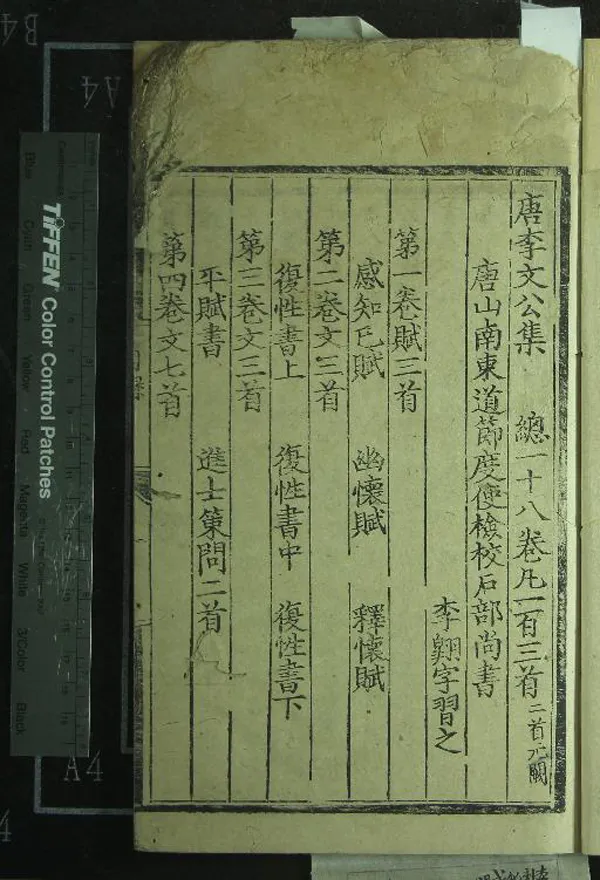 唐李文公集 總一十八卷凡一百三首 二首元闕
唐山南東道節度使檢校戶部尚書
李翺字習之
第一卷賦三首
感知己賦 幽懷賦 釋懷賦
第二卷文三首
復性書上 復性書中 復性書下
第三卷文三首
平賦書 進士策問二首
第四卷文七首
TIFFEN Color Control Patches
Blue
Cyan
Green
Yellow
Red
Magenta
White
3/Color
Black
A4
A4
B4